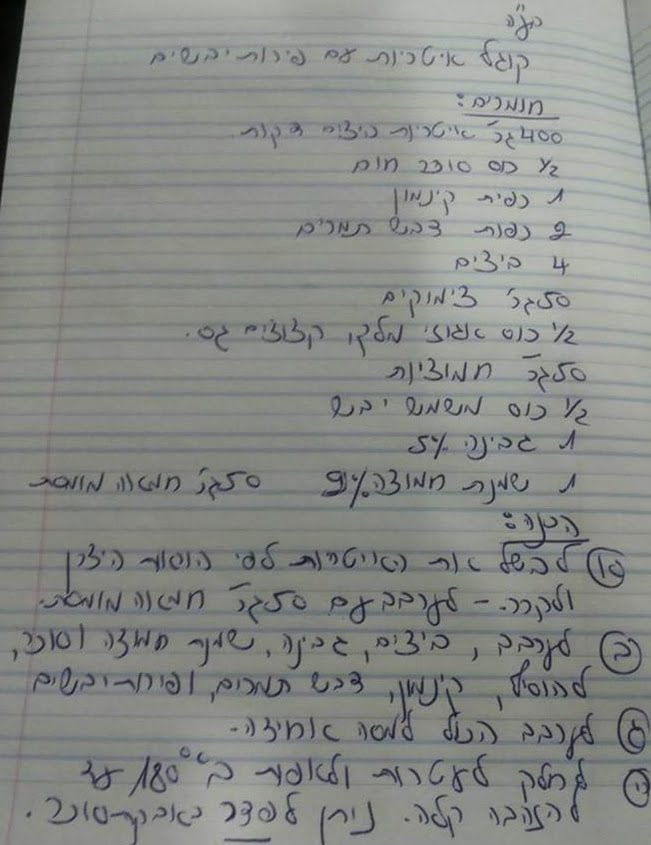 בע"ה
קוגל איטריות עם פירות יבשים
חומרים:
400 גר' איטריות ביצים דקות.
1/2 כוס סוכר חום
1 כפית קינמון
2 כפות דבש תמרים
4 ביצים
50 גר' צימוקים
1/2 כוס אגוזי מלך, קצוצים גס.
50 גר' חמוציות
1/2 כוס משמש יבש
1 גבינה 5%
1 שמנת חמוצה 9% 50 גר' חמאה מומסת
הכנה:
א) לבשל את האיטריות לפי הוראות היצרן
ולקרר. - לערבב עם 50 גר' חמאה מומסת.
ב) לערבב, ביצים, גבינה, שמנת חמוצה וסוכר,
להוסיף, קינמון, דבש תמרים, ופירות יבשים
ג) לערבב הכול למסה אחידה.
ד) לחלק לעטרות ולאפות ב 180°c עד
להזהבה קלה. ניתן לפדר באבקת-סוכר.